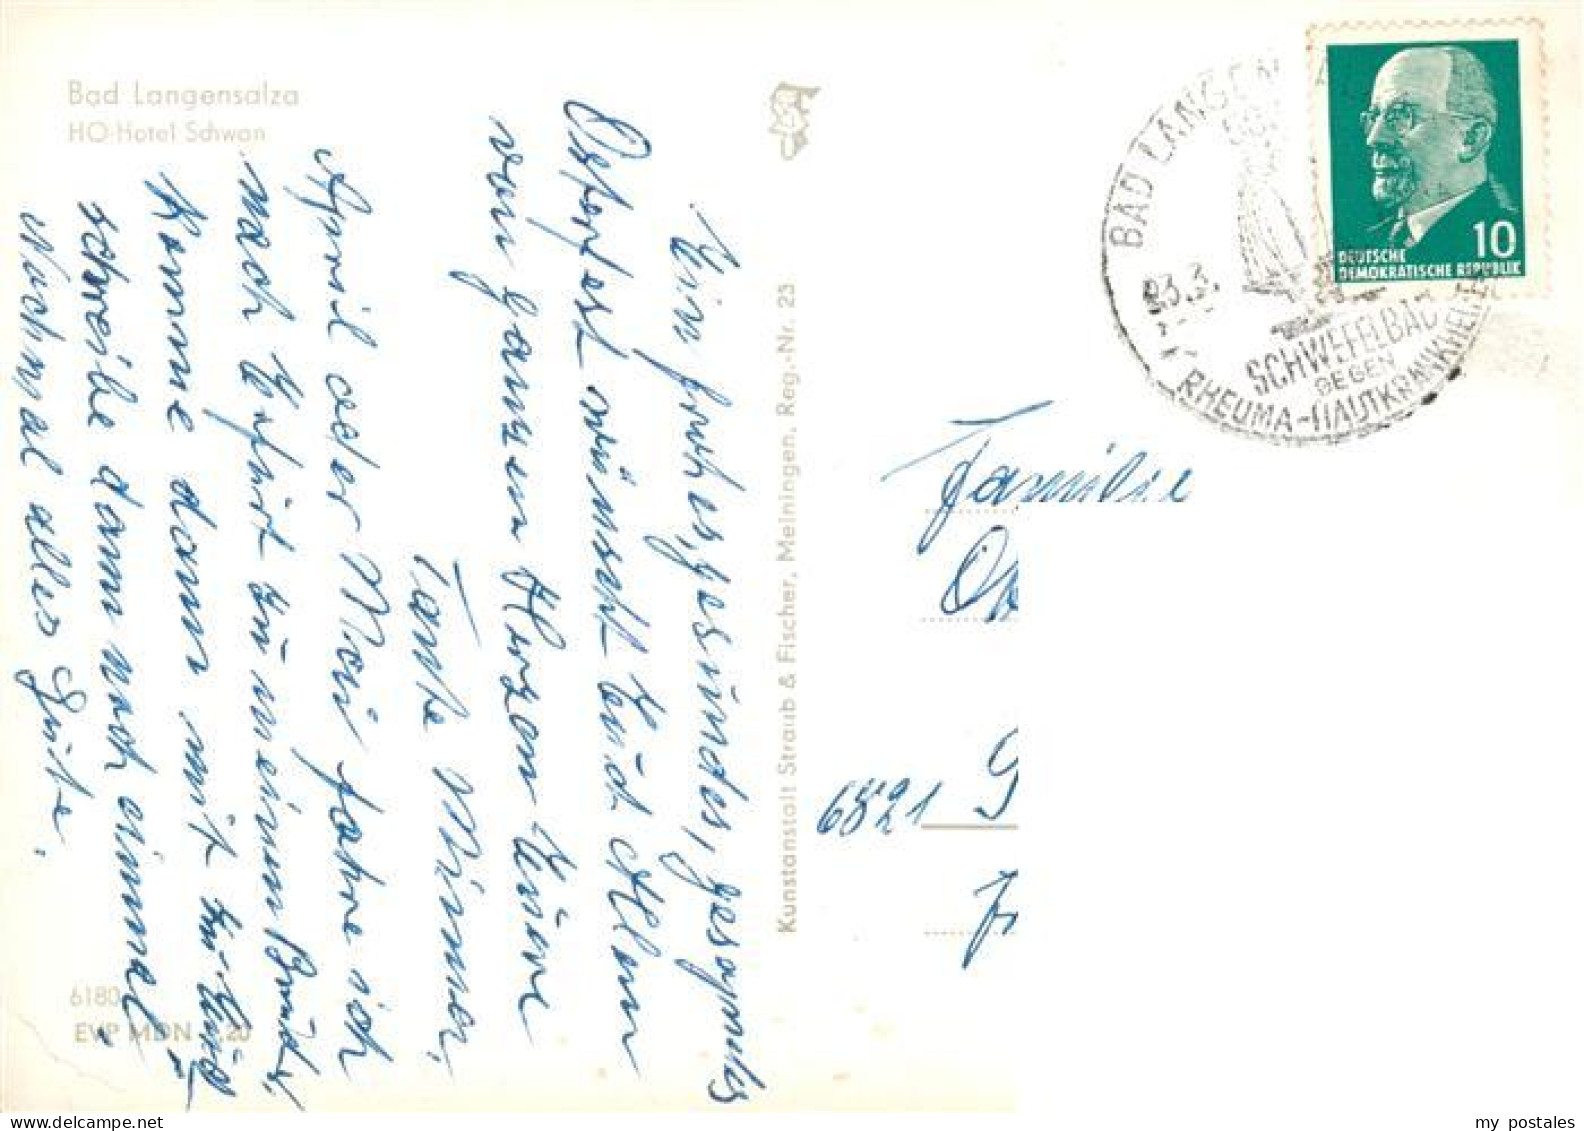 Bad Langensalza
HO-Hotel Schwan
Ein frohes, gesundes, gesegnetes
Osterfest wünscht Euch Allen
von ganzem Herzen Eure
Tante Minna.
April oder Mai fahre ich
nach Erfurt zu meinem Bruder.
Komme dann mit zu Euch
schreibe dann noch einmal.
Nochmal alles Gute.
6180
EVP MDN -.20
Kunstanstalt Straub & Fischer, Meiningen, Reg.-Nr. 23
BAD LANGEN
23.3.
SCHWEFELBAD
GEGEN
RHEUMA-HAUTKRANKHEITEN
10
DEUTSCHE
DEMOKRATISCHE REPUBLIK
Familie
6821 G
my postales